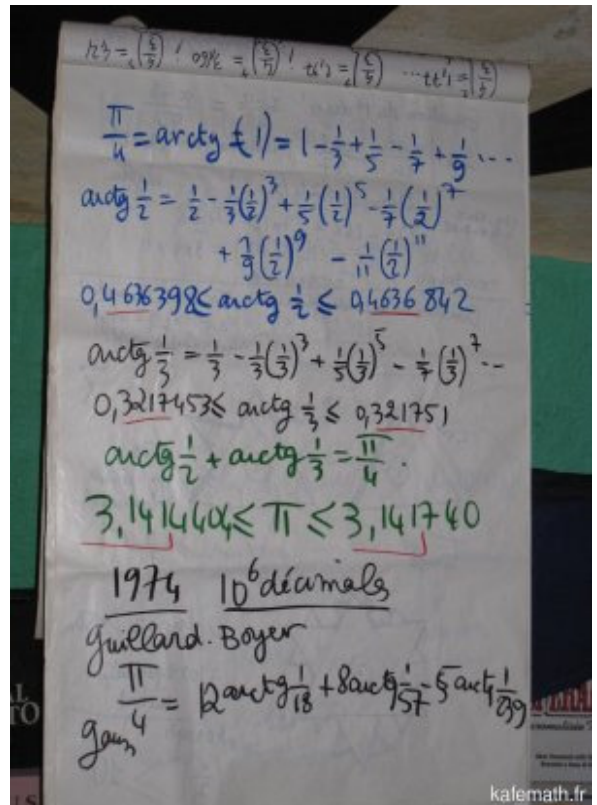 π/4 = arctg(1) = 1 - 1/3 + 1/5 - 1/7 + 1/9 ...
arctg 1/2 = 1/2 - 1/3(1/2)³ + 1/5(1/2)⁵ - 1/7(1/2)⁷
+ 1/9(1/2)⁹ - 1/11(1/2)¹¹
0,4636398 ≤ arctg 1/2 ≤ 0,4636842
arctg 1/3 = 1/3 - 1/3(1/3)³ + 1/5(1/3)⁵ - 1/7(1/3)⁷ ...
0,3217453 ≤ arctg 1/3 ≤ 0,321751
arctg 1/2 + arctg 1/3 = π/4.
3,1414404 ≤ π ≤ 3,141740
1974 10⁶ décimals
Guillard. Boyer
π/4 = 12 arctg 1/18 + 8 arctg 1/57 - 5 arctg 1/239
Gauss
kafemath.fr